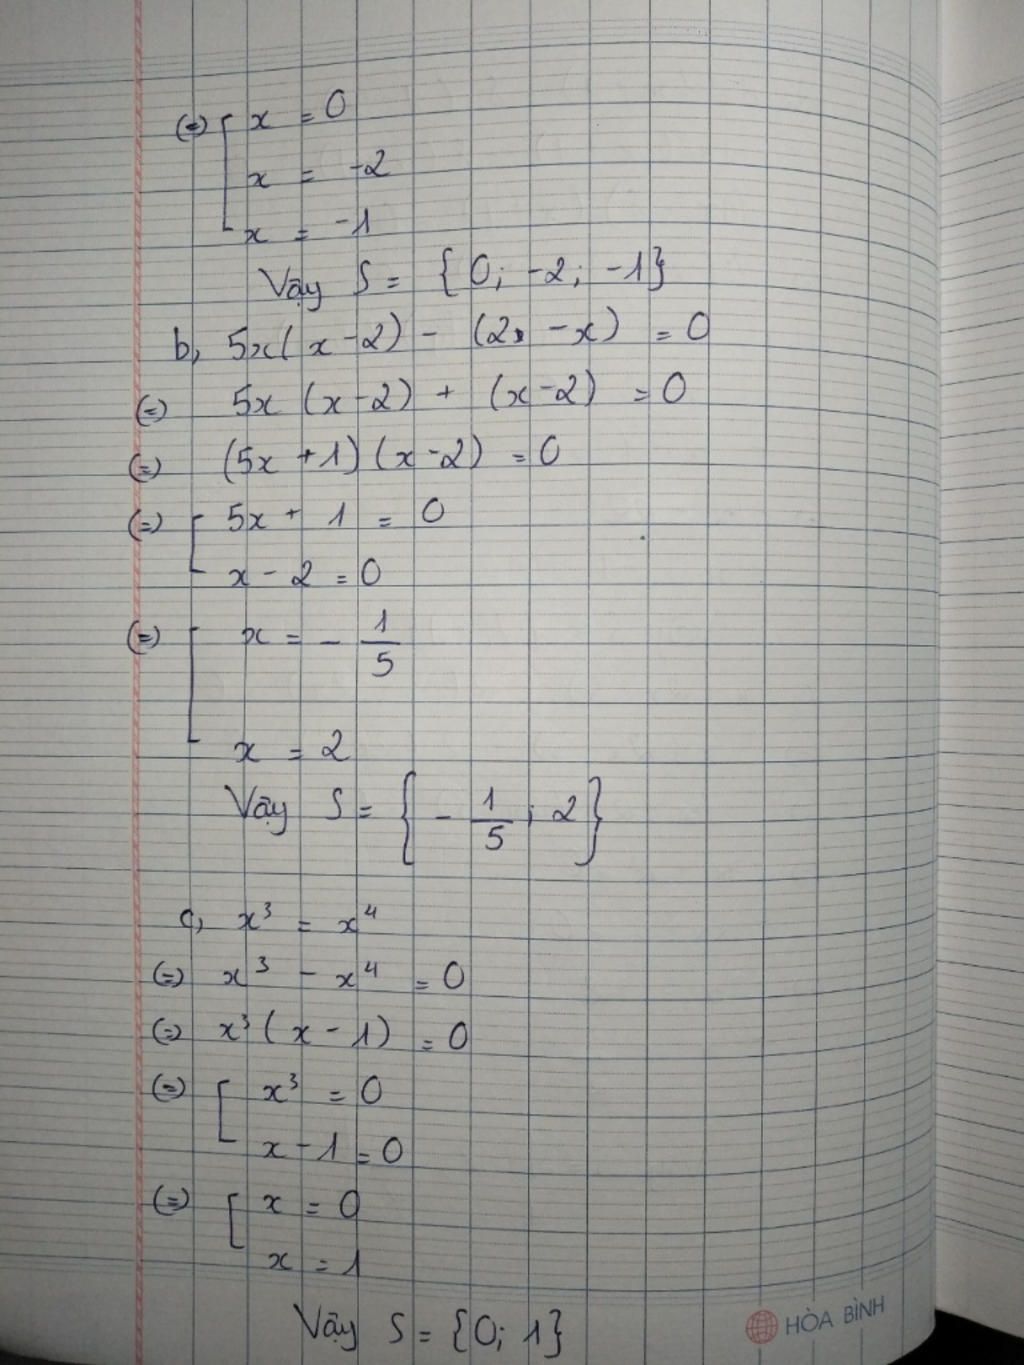 (=) [ x = 0
x = -2
x = -1
Vậy S = {0; -2; -1}
b, 5x(x-2) - (2 - x) = 0
(=) 5x (x-2) + (x-2) = 0
(=) (5x + 1)(x-2) = 0
(=) [ 5x + 1 = 0
x - 2 = 0
(=) [ x = - 1/5
x = 2
Vậy S = { - 1/5 ; 2 }
c, x³ = x⁴
(=) x³ - x⁴ = 0
(=) x³( x - 1) = 0
(=) [ x³ = 0
x - 1 = 0
(=) [ x = 0
x = 1
Vậy S = {0; 1}
HÒA BÌNH